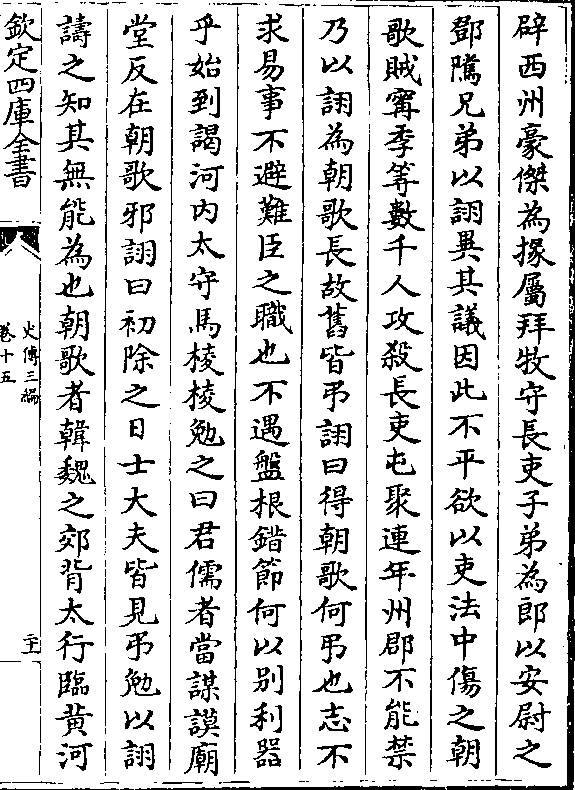 辟西州豪傑為掾屬拜牧守長吏子弟為郎以安尉之
鄧隲兄弟以詡異其議因此不平欲以吏法中傷之朝
歌賊寗季等數千人攻殺長吏屯聚連年州郡不能禁
乃以詡為朝歌長故舊皆弔詡曰得朝歌何弔也志不
求易事不避難臣之職也不遇盤根錯節何以别利器
乎始到謁河内太守馬棱棱勉之曰君儒者當謀謨廟
堂反在朝歌邪詡曰初除之日士大夫皆見弔勉以詡
譸之知其無能為也朝歌者韓魏之郊背太行臨黄河
欽定四庫全書
史傳三編
卷十五